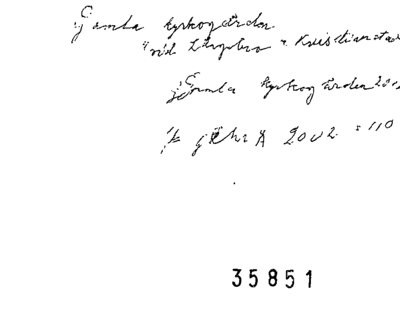 Gamla kyrkogården
vid Långebro i Kristianstad
Gamla kyrkogården
2002 : 110
35851